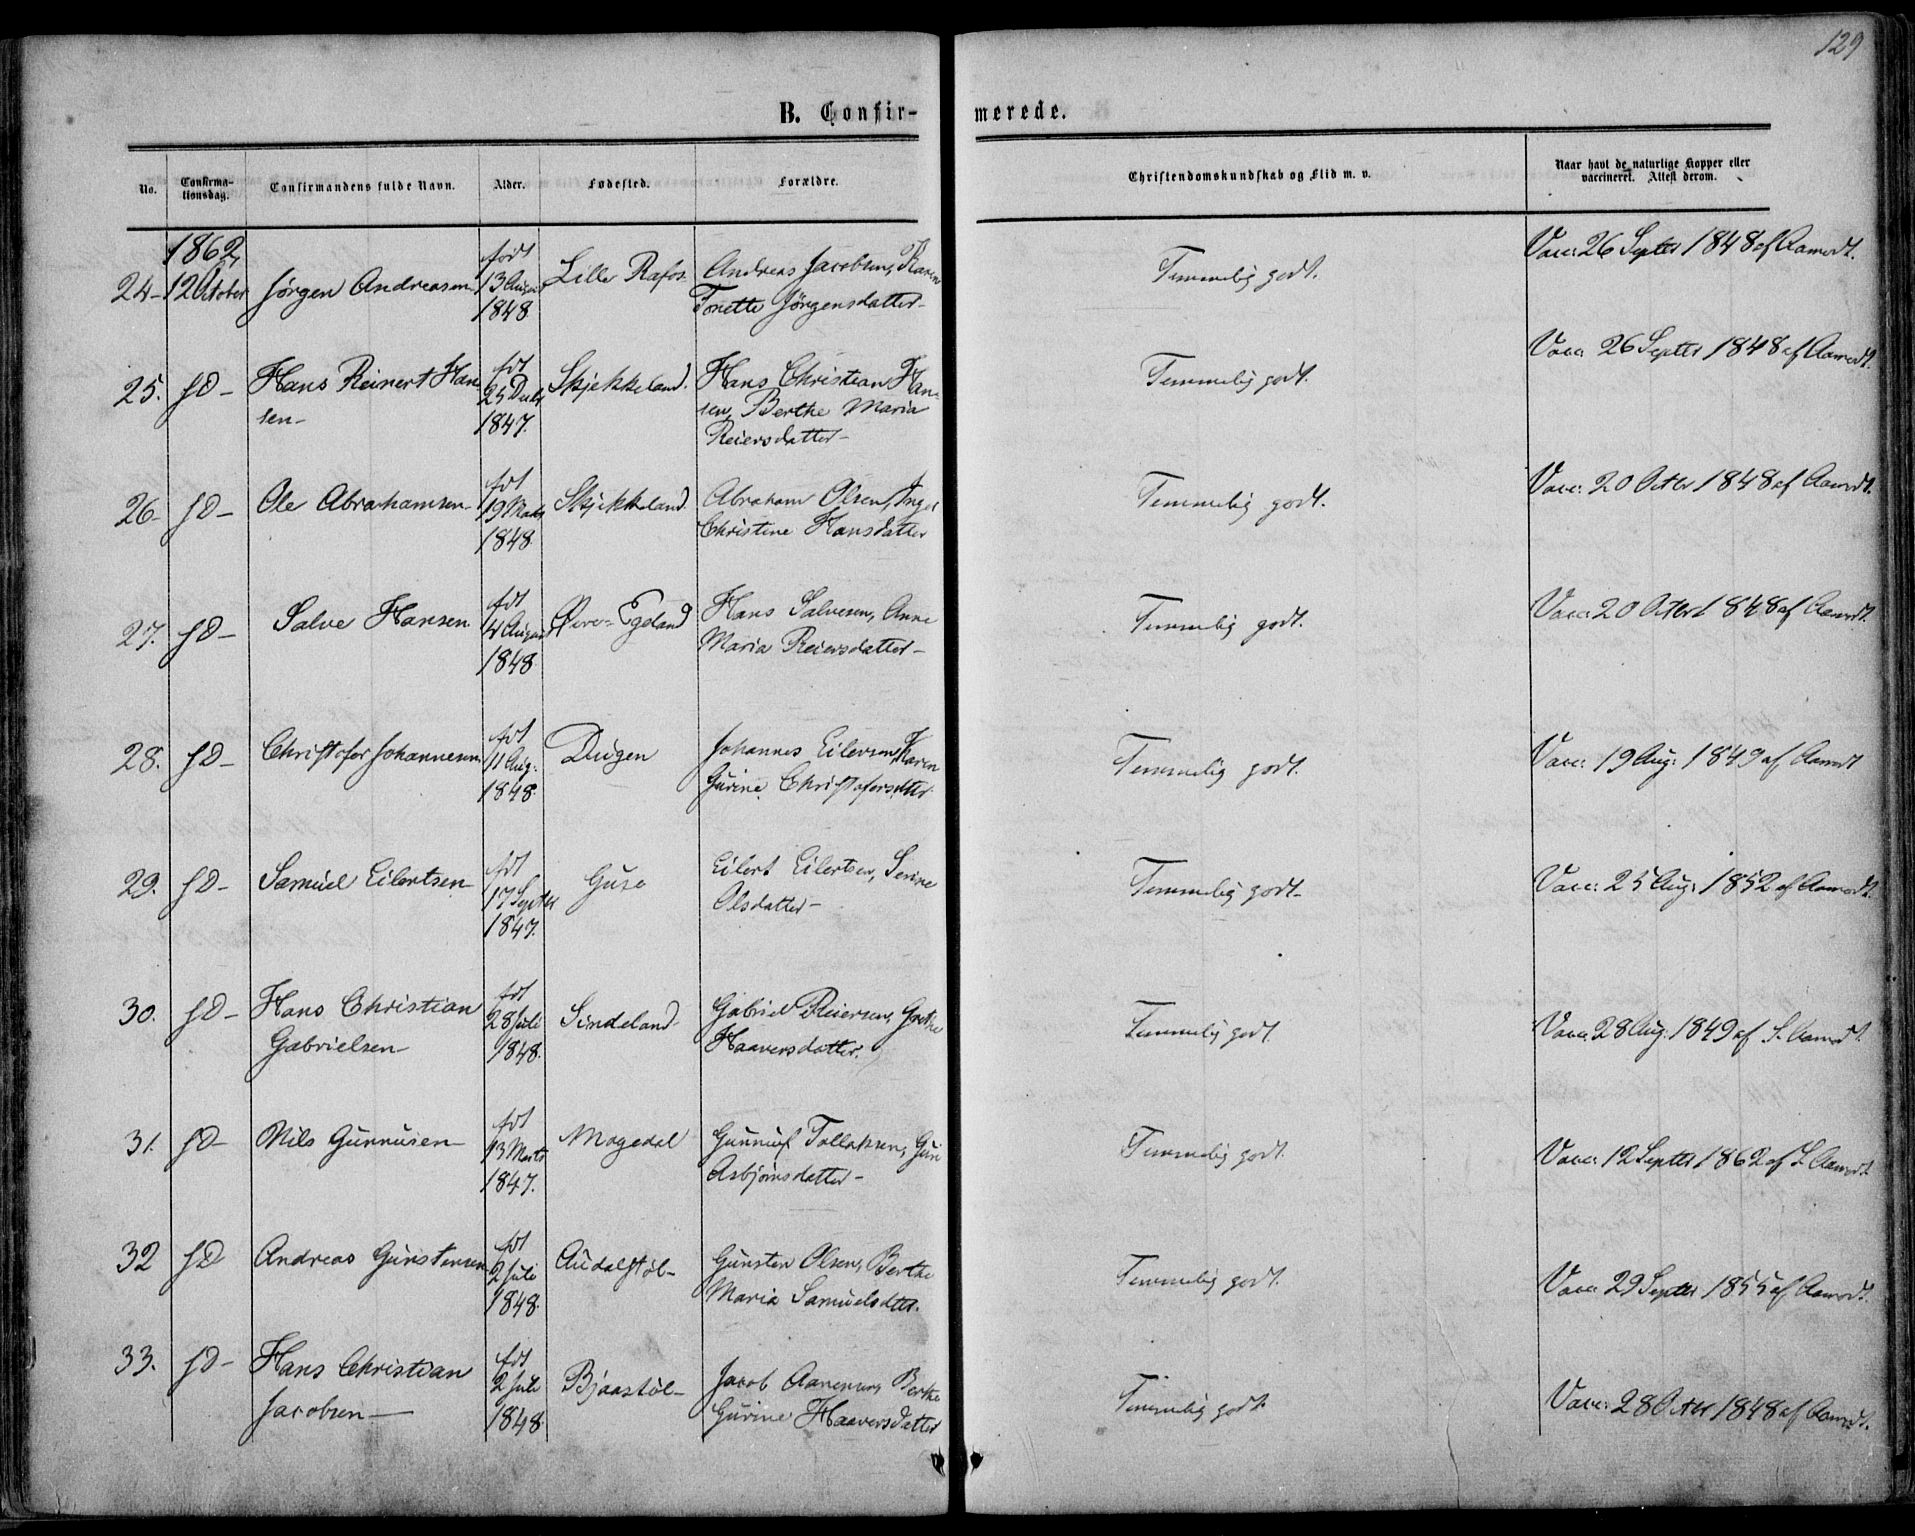 129
B. Confir- merede.
No. Confirma-tionsdag. Confirmandens fulde Navn. Alder. Fødested. Forældre. Christendomskundskab og Flid m. v. Naar havt de naturlige Kopper eller vaccineret. Attest derom.
1862,
24- 12 October Jørgen Andreasen født 13 August 1848 Lille Rafos Andreas Jacobsen, Karen Tonette Jørgensdatter- Temmelig godt. Vacc: 26 Septer 1848 af Aamodt.
25. fD- Hans Reinert Han-sen- fdt 25 Decbr 1847. Skjekkeland. Hans Christian Han-sen, Berthe Maria Reiersdatter- Temmelig godt. Vacc: 26 Septer 1848 af Aamodt.
26- fD- Ole Abrahamsen- fdt 19 Marts 1848 Skjekkeland. Abraham Olsen, Inger Christine Hansdatter Temmelig godt. Vacc: 20 Octbr 1848 af Aamodt.
27. fD- Salve Hansen fdt 4 August 1848 Øvre-Egeland Hans Salvesen, Anne Maria Reiersdatter- Temmelig godt. Vacc: 20 Octbr 1848 af Aamodt.
28. fD- Christofer Johannesen fdt 11 Aug: 1848. Dugen Johannes Eilevsen, Karen Gurine Christofersdtter Temmelig godt. Vacc: 19 Aug: 1849 af Aamodt
29. fD- Samuel Eilertsen- fdt 17 Septer 1847. Guse Eilert Eilertsen, Serine Olsdatter- Temmelig godt- Vacc: 25 Aug: 1852 af Aamodt.
30. fD- Hans Christian Gabrielsen- fdt 28 Juli 1848. Sindeland- Gabriel Reiersen, Grethe Haaversdatter. Temmelig godt. Vacc: 28 Aug: 1849 af S. Aamodt.
31. fD- Nils Gunnusen- fdt 13 Marts 1847. Mogedal Gunnuf Tollaksen, Guri Asbjørnsdatter- Temmelig godt. Vacc: 12 Septer 1862 af S. Aamodt.
32 fD Andreas Gunstensen fdt 2 Juli 1848. Audalstøl- Gunsten Olsen, Berthe Maria Samuelsdtter. Temmelig godt. Vacc: 29 Septer 1855 af Aamodt.
33. fD- Hans Christian Jacobsen- fdt 2 Juli 1848. Bjaastøl- Jacob Aanensen, Berthe Gurine Haaversdatter Temmelig godt. Vacc: 28 Octbr 1848 af Aamodt.